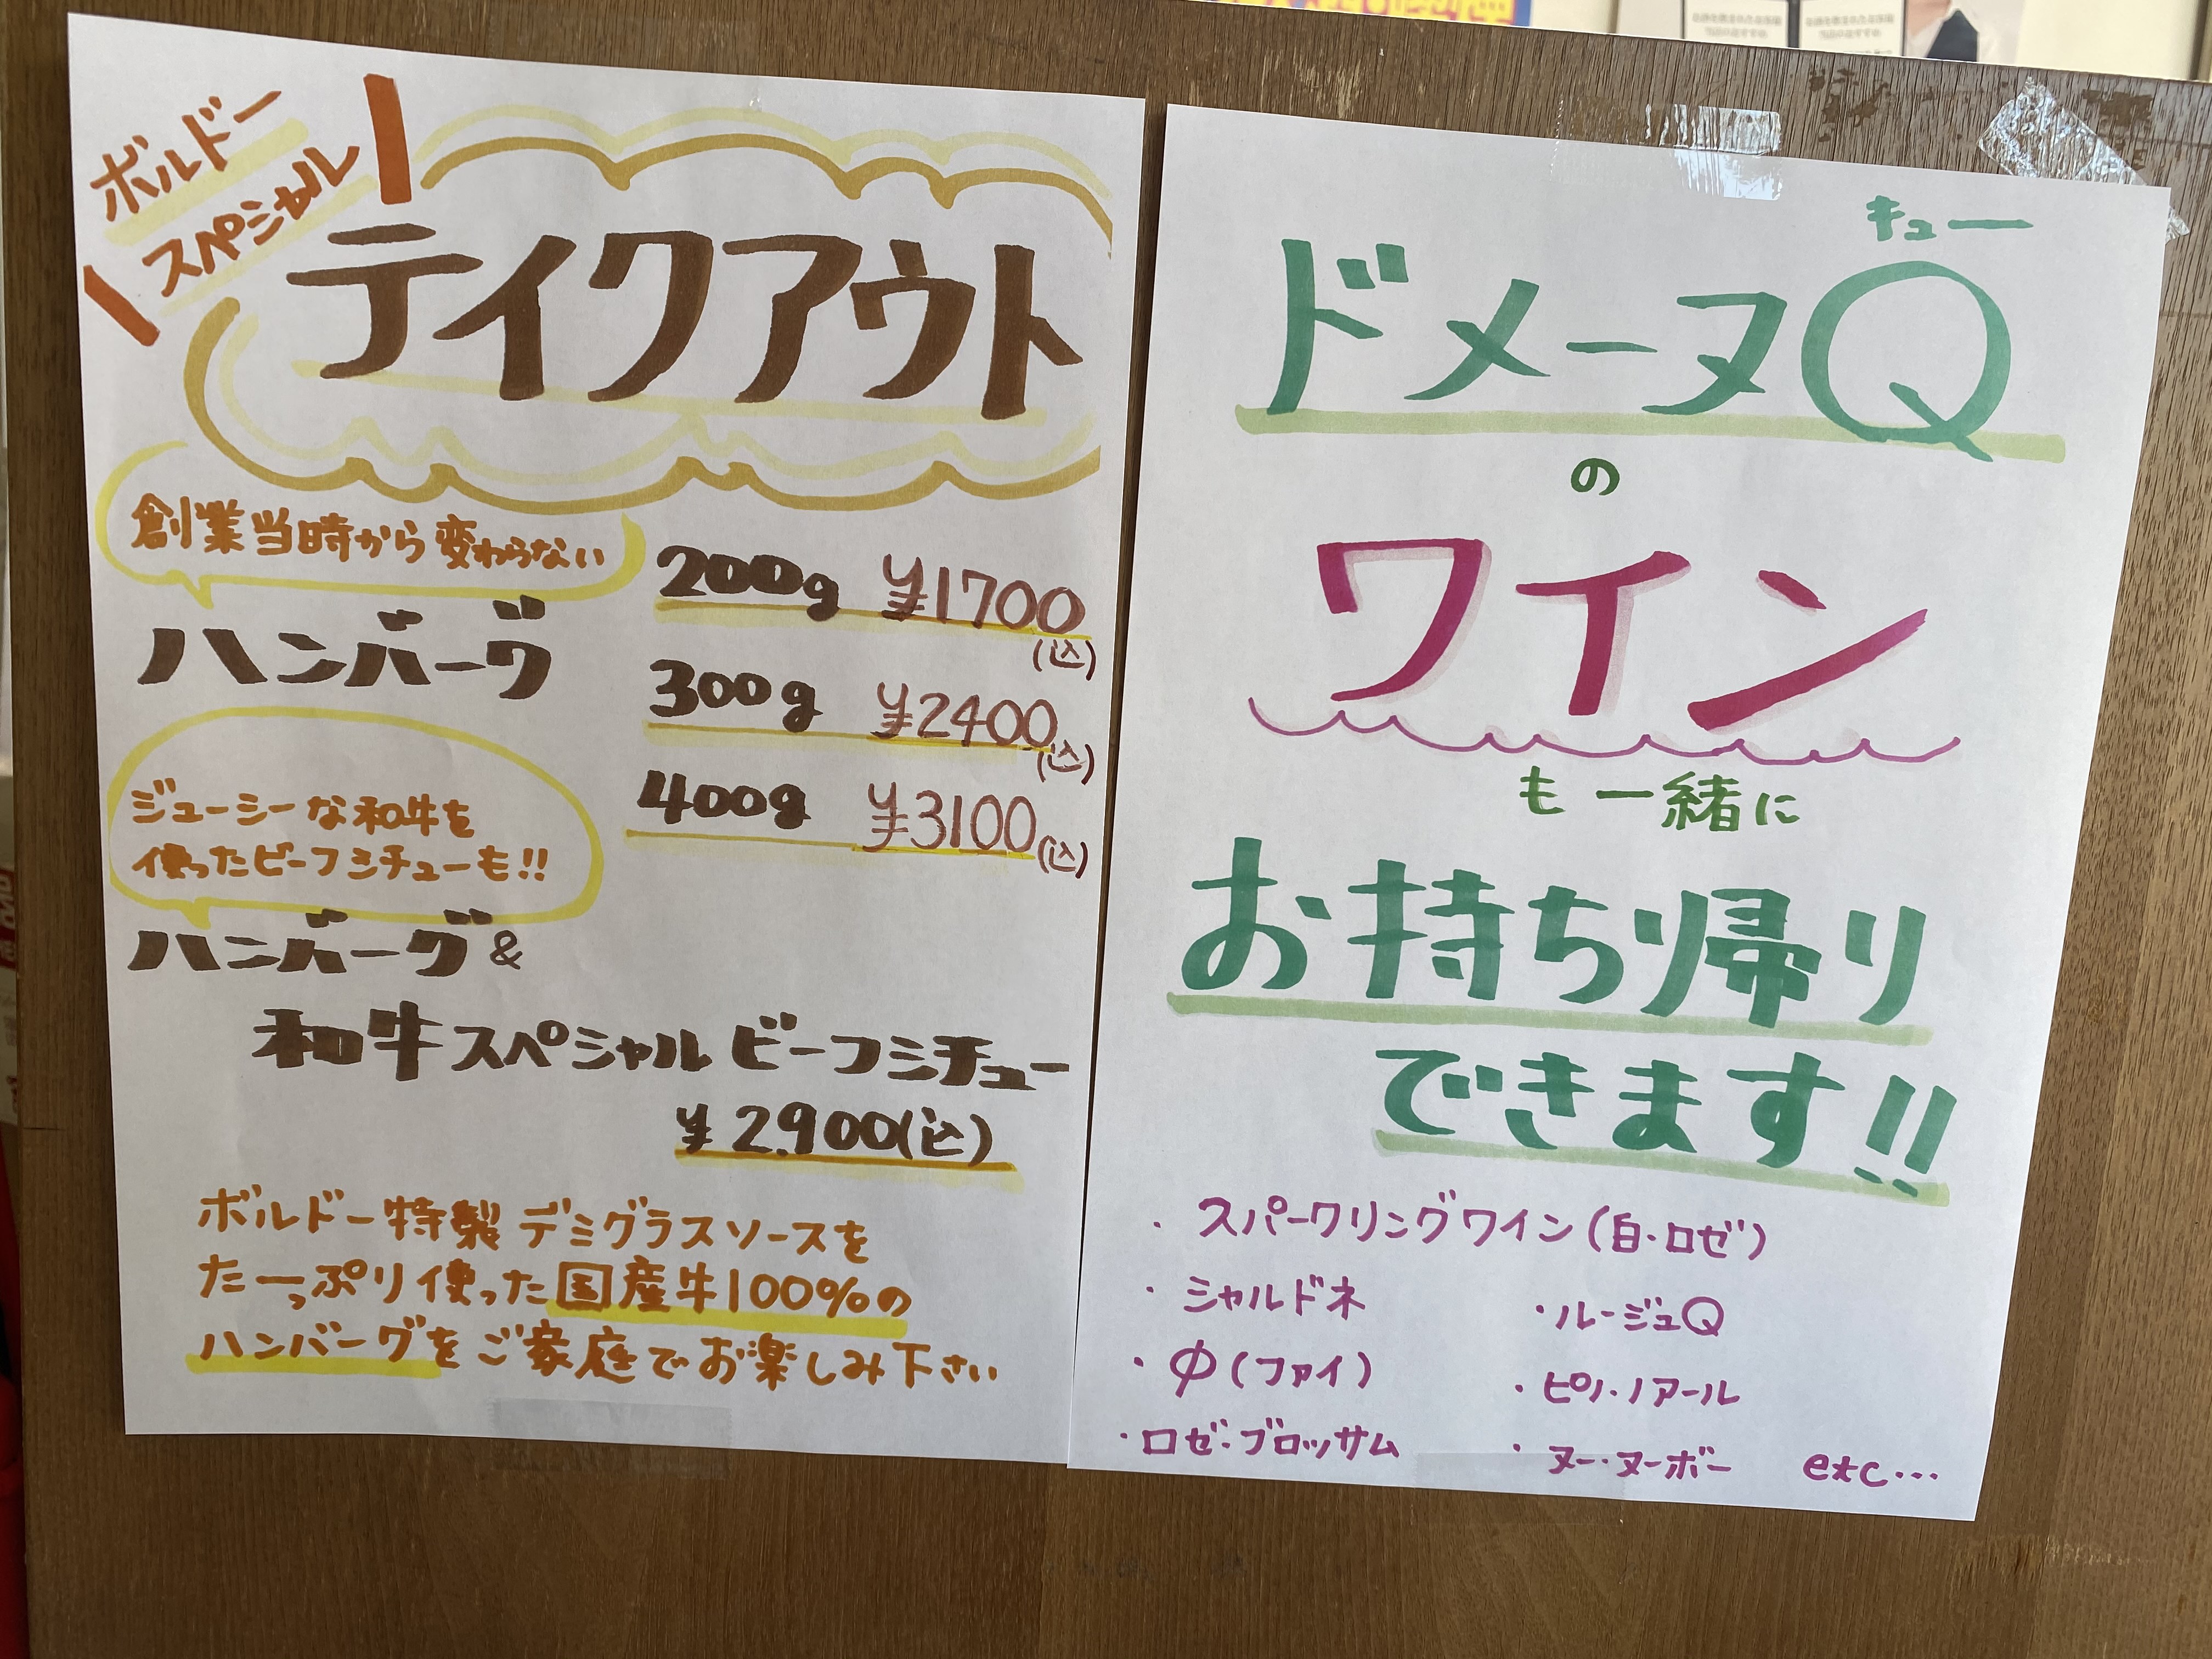 ボルドー
スペシャル
テイクアウト
創業当時から変わらない
ハンバーグ
200g ¥1700
(込)
300g ¥2400
(込)
400g ¥3100(込)
ジューシーな和牛を
使ったビーフシチューも!!
ハンバーグ&
和牛スペシャルビーフシチュー
¥2.900(込)
ボルドー特製デミグラスソースを
たーっぷり使った国産牛100%の
ハンバーグをご家庭でお楽しみ下さい
キュー
ドメーヌQ
の
ワイン
も一緒に
お持ち帰り
できます!!
・スパークリングワイン(白・ロゼ)
・シャルドネ ・ルージュQ
・Φ(ファイ) ・ピノ・ノアール
・ロゼ・ブロッサム ・ヌー・ヌーボー etc…